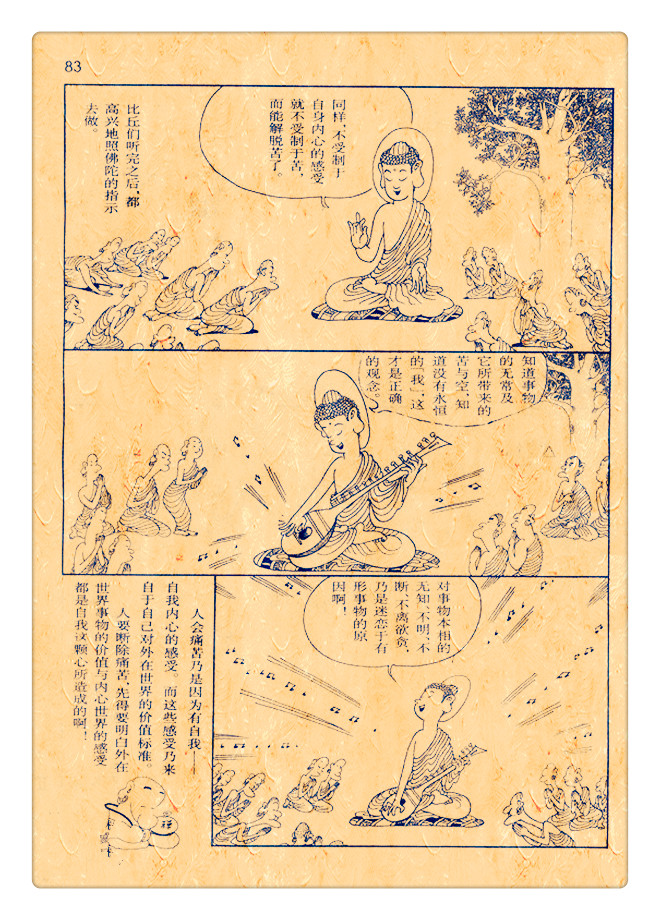 83
同样,不受制于
自身内心的感受
就不受制于苦,
而能解脱苦了。
比丘们听完之后,都
高兴地照佛陀的指示
去做。
知道事物
的无常及
它所带来的
苦与空,知
道没有永恒
的「我」,这
才是正确
的观念。
对事物本相的
无知、不明、不
断、不离欲贪,
乃是迷恋于有
形事物的原
因啊!
人会痛苦乃是因为有自我——
自我内心的感受。而这些感受乃来
自于自己对外在世界的价值标准。
人要断除痛苦,先得要明白外在
世界事物的价值与内心世界的感受
都是自我这颗心所造成的啊!